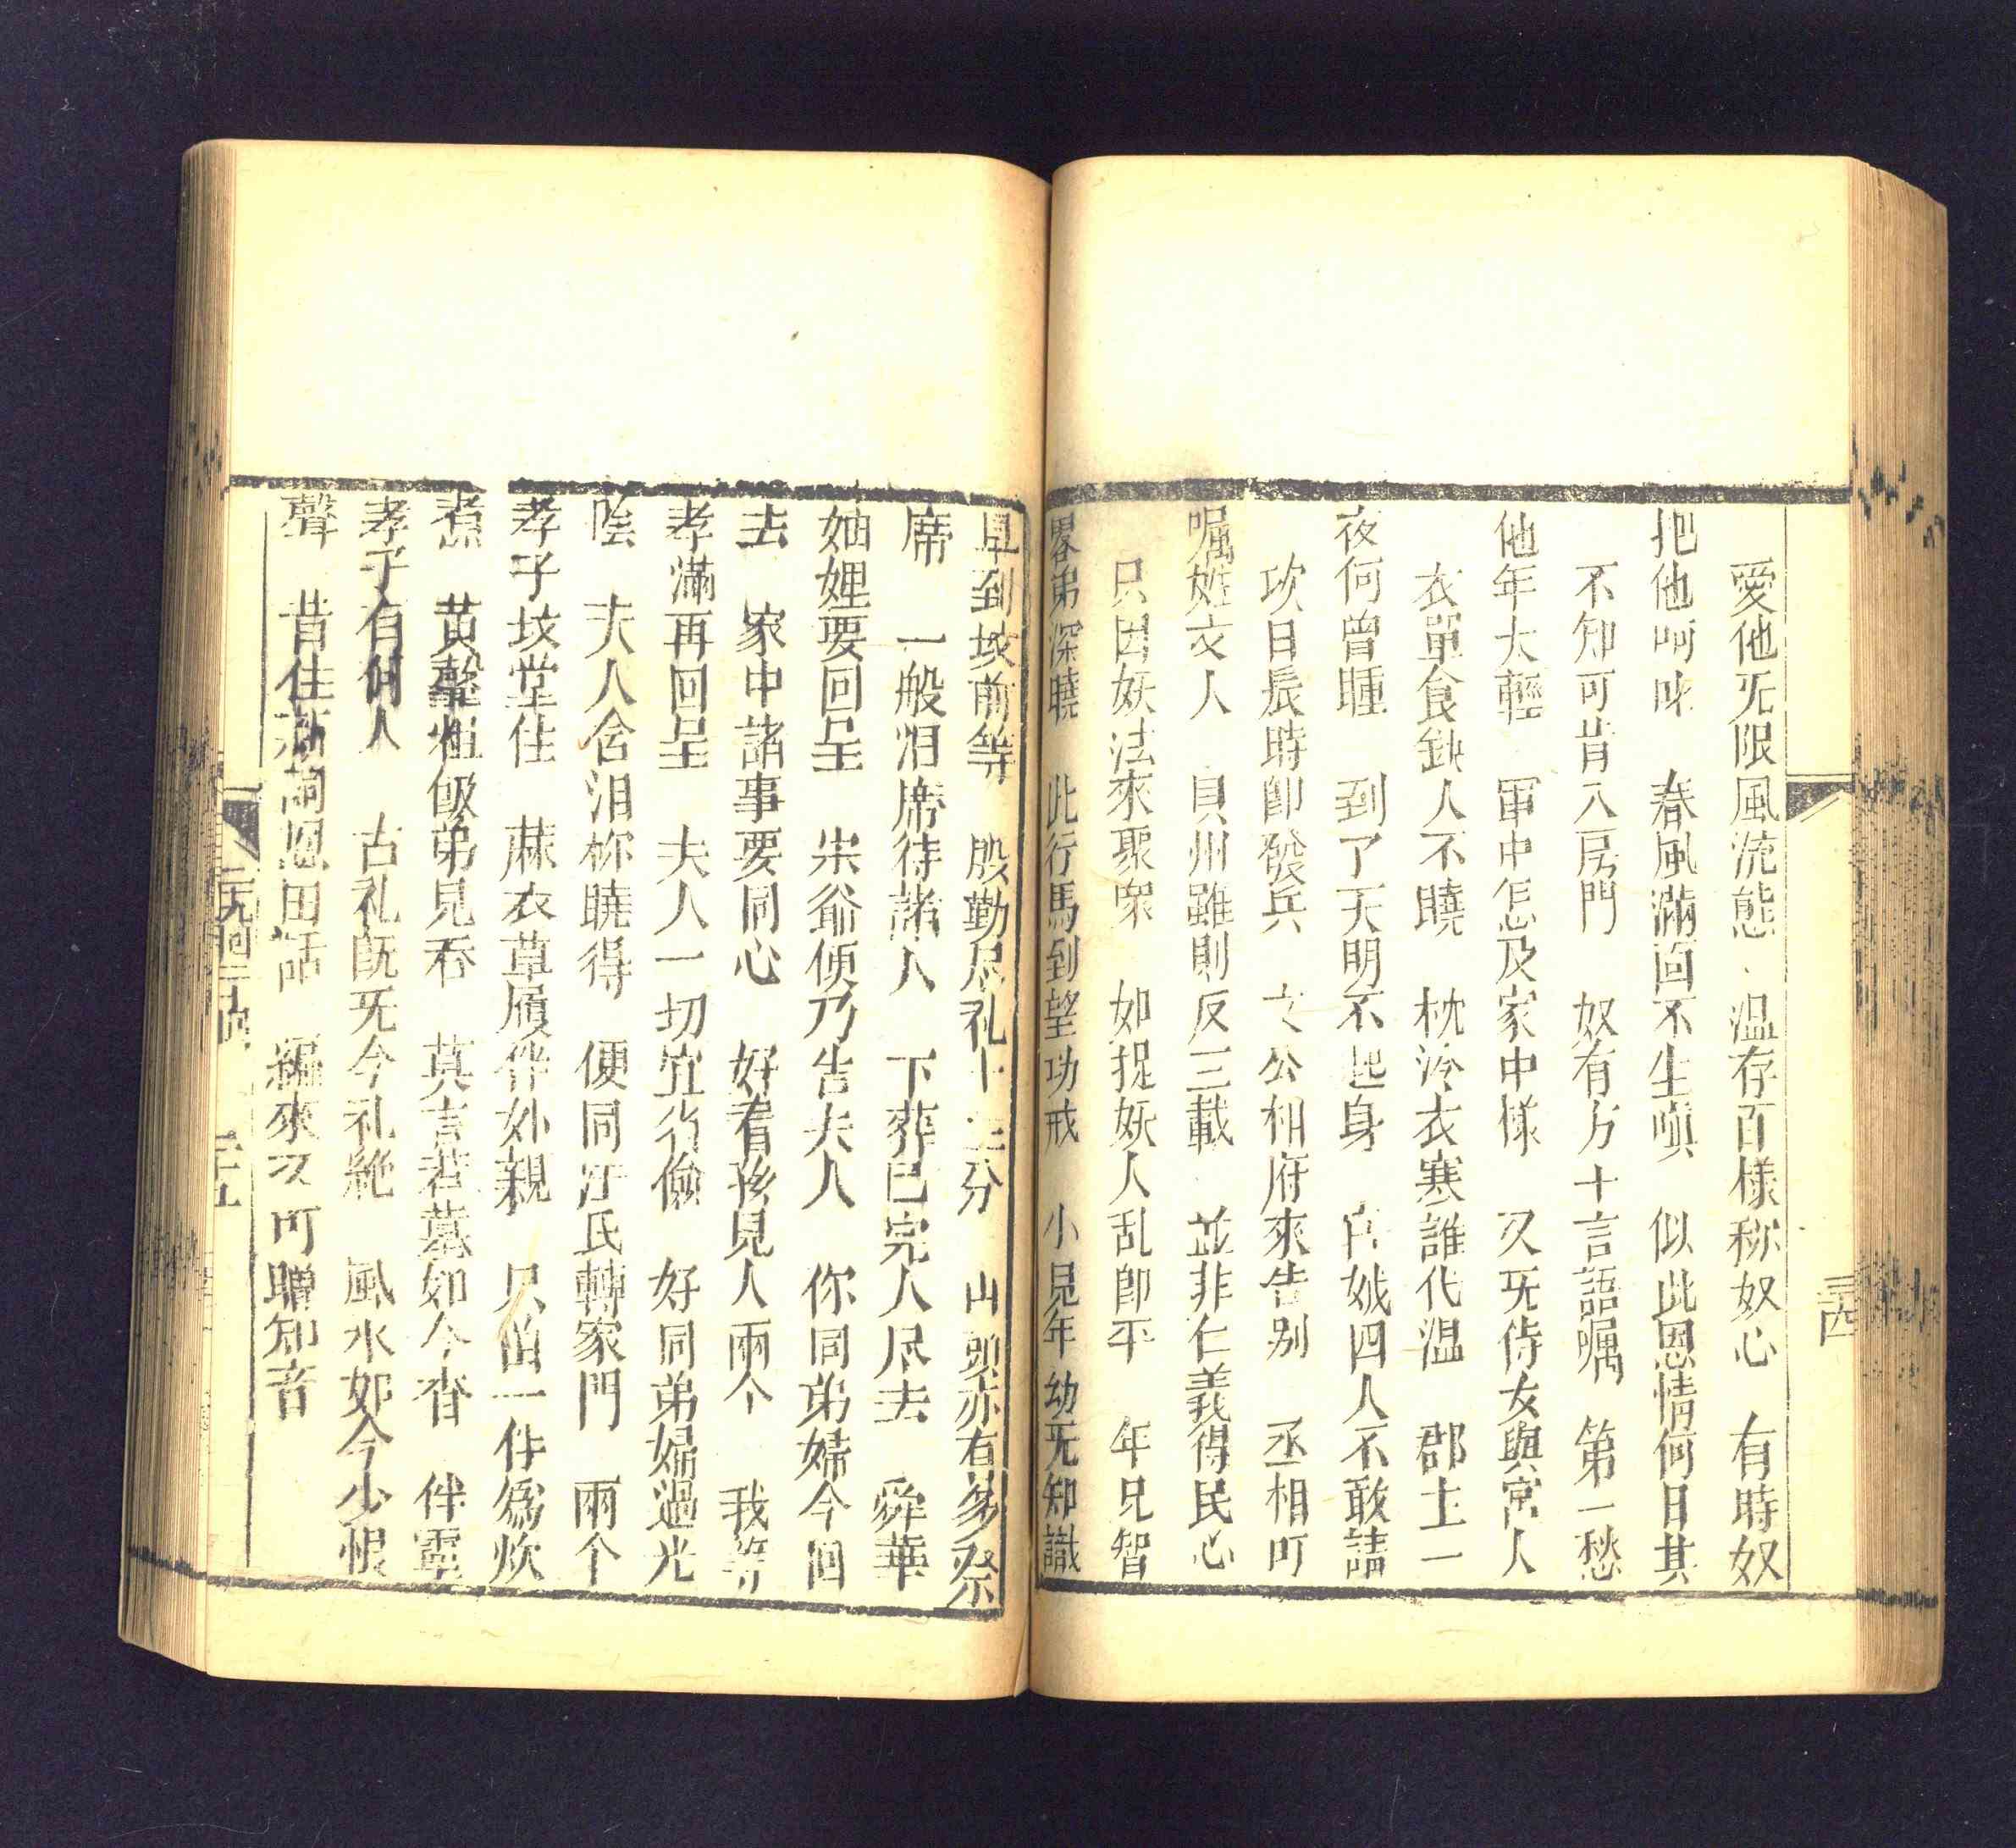 愛他旡限風流態 温存百樣称奴心 有時奴
把他呵咪 春風滿面不生嗔 似此恩情何日其
不知可肯入房門 奴有万十言語嘱 第一愁
他年大輕 軍中怎及家中樣 又旡侍女與宮人
衣單食缺人不曉 枕冷衣寒誰代温 郡主一
夜何曾睡 到了天明不起身 宫娥四人不敢請
次日辰時即發兵 文公相府來告别 丞相叮
嘱姪文人 貝州雖則反三載 並非仁義得民心
只因妖法來聚衆 如捉妖人乱即平 年兄智
畧弟深曉 此行馬到望功成 小晃年幼旡知識
三四
早到坟前等 殷勤尽礼十二分 山頭亦有多祭
席 一般泪席待諸人 下葬已完人尽去 舜華
妯娌要回呈 宋爺便乃告夫人 你同弟婦今囬
去 家中諸事要同心 好看孩兒人兩个 我等
孝滿再回呈 夫人一切宜省儉 好同弟婦過光
陰 夫人含泪称曉得 便同汪氏轉家門 兩个
孝子坟堂住 蔴衣草履伴外親 只畄一件爲炊
煮 黄虀粗飯弟兄吞 莫言若墓如今杳 伴靈
孝子有何人 古礼旣旡今礼絶 風水如今少恨
聲 昔住 恩田話 編來又可贈知音
三十五